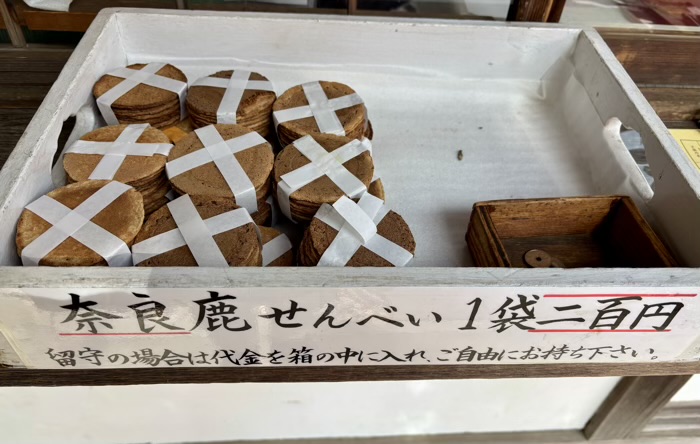 奈良鹿せんべい1袋二百円
留守の場合は代金を箱の中に入れ、ご自由にお持ち下さい。